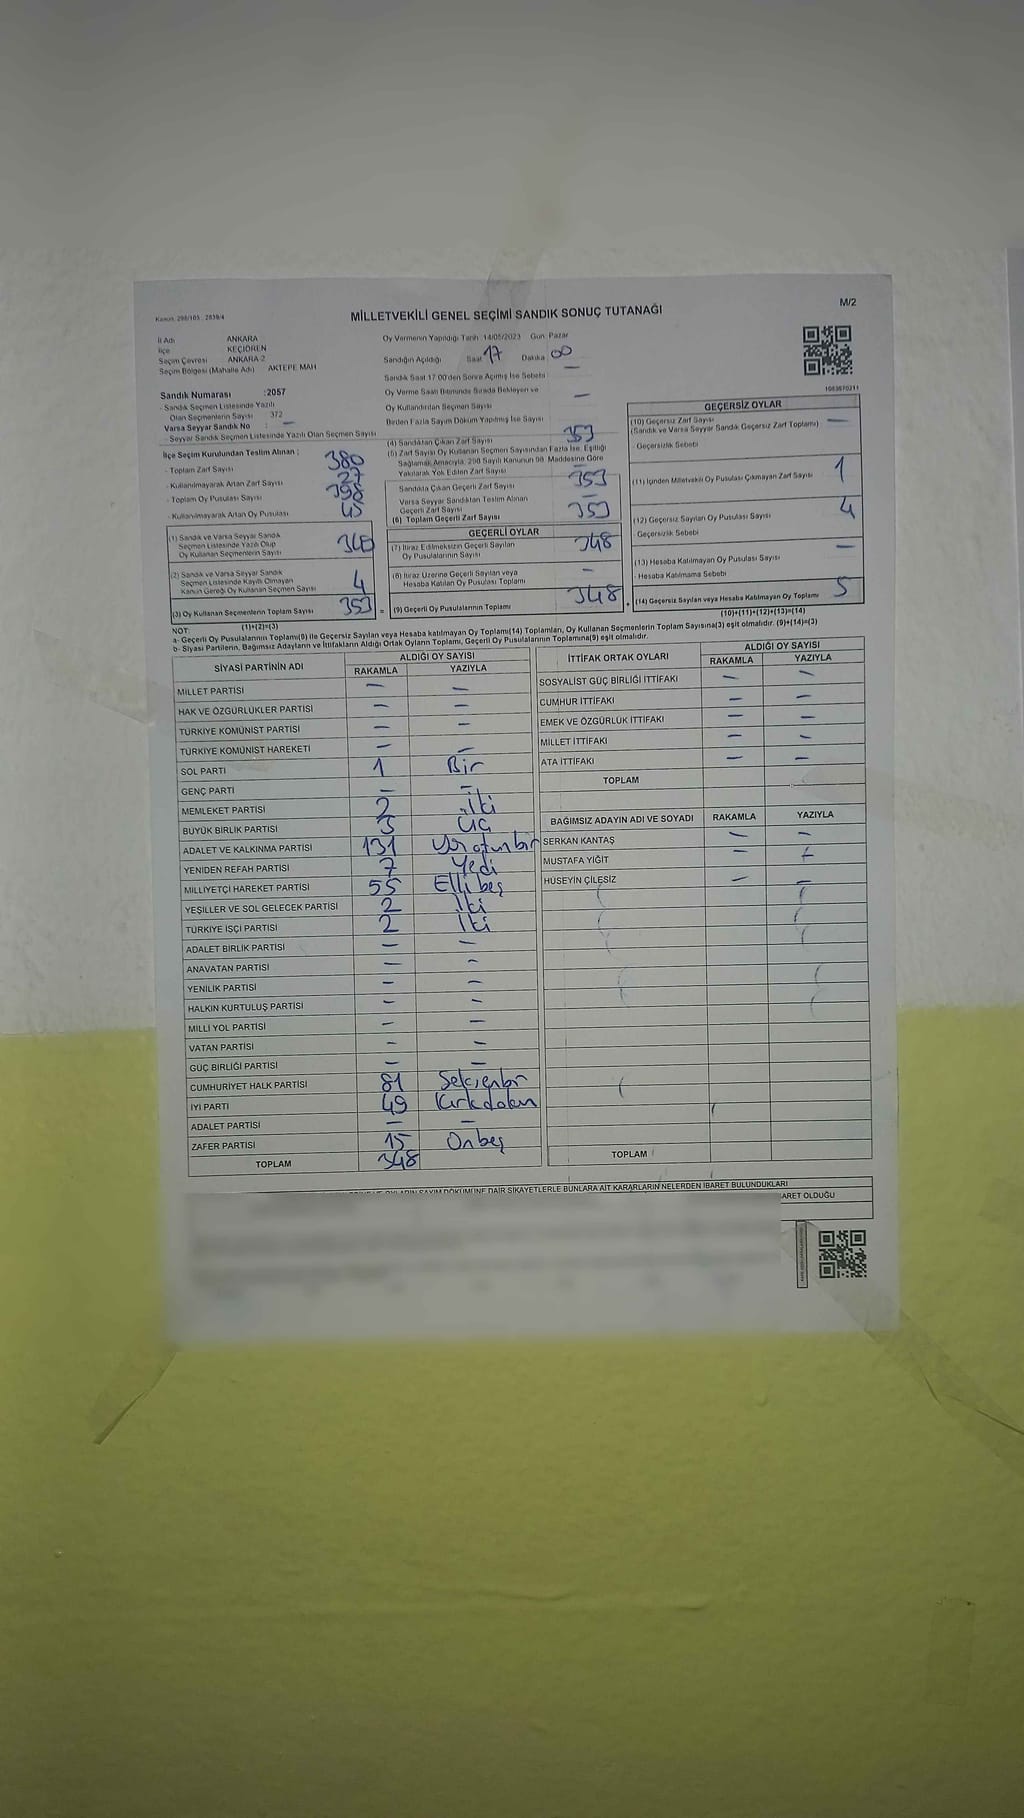 Kanun: 298/105 , 2839/4
MİLLETVEKİLİ GENEL SEÇİMİ SANDIK SONUÇ TUTANAĞI
M/2
İl Adı ANKARA
İlçe KEÇİÖREN
Seçim Çevresi ANKARA 2
Seçim Bölgesi (Mahalle Adı) AKTEPE MAH
Sandık Numarası :2057
- Sandık Seçmen Listesinde Yazılı
Olan Seçmenlerin Sayısı 372
Varsa Seyyar Sandık No : –
- Seyyar Sandık Seçmen Listesinde Yazılı Olan Seçmen Sayısı
İlçe Seçim Kurulundan Teslim Alınan :
- Toplam Zarf Sayısı 380
- Kullanılmayarak Artan Zarf Sayısı 27
- Toplam Oy Pusulası Sayısı 398
- Kullanılmayarak Artan Oy Pusulası 45
(1) Sandık ve Varsa Seyyar Sandık
Seçmen Listesinde Yazılı Olup
Oy Kullanan Seçmenlerin Sayısı
(2) Sandık ve Varsa Seyyar Sandık
Seçmen Listesinde Kayıtlı Olmayan
Kanun Gereği Oy Kullanan Seçmen Sayısı 4
(3) Oy Kullanan Seçmenlerin Toplam Sayısı 353
(1)+(2)=(3)
Oy Vermenin Yapıldığı Tarih 14/05/2023 Gün: Pazar
Sandığın Açıldığı Saat 17 Dakika 00
Sandık Saat 17:00'den Sonra Açılmış İse Sebebi –
Oy Verme Saati Bitiminde Sırada Bekleyen ve
Oy Kullandırılan Seçmen Sayısı –
Birden Fazla Sayım Döküm Yapılmış İse Sayısı
(4) Sandıktan Çıkan Zarf Sayısı 353
(5) Zarf Sayısı Oy Kullanan Seçmen Sayısından Fazla İse, Eşitliği
Sağlamak Amacıyla, 298 Sayılı Kanunun 98. Maddesine Göre
Yakılarak Yok Edilen Zarf Sayısı –
Sandıkta Çıkan Geçerli Zarf Sayısı 353
Varsa Seyyar Sandıktan Teslim Alınan
Geçerli Zarf Sayısı –
(6) Toplam Geçerli Zarf Sayısı 353
GEÇERLİ OYLAR
(7) İtiraz Edilmeksizin Geçerli Sayılan
Oy Pusulalarının Sayısı 348
(8) İtiraz Üzerine Geçerli Sayılan veya
Hesaba Katılan Oy Pusulası Toplamı –
= (9) Geçerli Oy Pusulalarının Toplamı 348 +
1083670211
GEÇERSİZ OYLAR
(10) Geçersiz Zarf Sayısı –
(Sandık ve Varsa Seyyar Sandık Geçersiz Zarf Toplamı)
- Geçersizlik Sebebi
(11) İçinden Milletvekili Oy Pusulası Çıkmayan Zarf Sayısı 1
(12) Geçersiz Sayılan Oy Pusulası Sayısı 4
- Geçersizlik Sebebi
(13) Hesaba Katılmayan Oy Pusulası Sayısı –
- Hesaba Katılmama Sebebi
(14) Geçersiz Sayılan veya Hesaba Katılmayan Oy Toplamı 5
(10)+(11)+(12)+(13)=(14)
NOT:
a- Geçerli Oy Pusulalarının Toplamı(9) ile Geçersiz Sayılan veya Hesaba katılmayan Oy Toplamı(14) Toplamları, Oy Kullanan Seçmenlerin Toplam Sayısına(3) eşit olmalıdır. (9)+(14)=(3)
b- Siyasi Partilerin, Bağımsız Adayların ve İttifakların Aldığı Ortak Oyların Toplamı, Geçerli Oy Pusulalarının Toplamına(9) eşit olmalıdır.
SİYASİ PARTİNİN ADI ALDIĞI OY SAYISI
RAKAMLA YAZIYLA
MİLLET PARTİSİ – –
HAK VE ÖZGÜRLÜKLER PARTİSİ – –
TÜRKİYE KOMÜNİST PARTİSİ – –
TÜRKİYE KOMÜNİST HAREKETİ – –
SOL PARTİ 1 Bir
GENÇ PARTİ – –
MEMLEKET PARTİSİ 2 İki
BÜYÜK BİRLİK PARTİSİ 3 Üç
ADALET VE KALKINMA PARTİSİ 131 Yüzotuzbir
YENİDEN REFAH PARTİSİ 7 Yedi
MİLLİYETÇİ HAREKET PARTİSİ 55 Ellibeş
YEŞİLLER VE SOL GELECEK PARTİSİ 2 İki
TÜRKİYE İŞÇİ PARTİSİ 2 İki
ADALET BİRLİK PARTİSİ – –
ANAVATAN PARTİSİ – –
YENİLİK PARTİSİ – –
HALKIN KURTULUŞ PARTİSİ – –
MİLLİ YOL PARTİSİ – –
VATAN PARTİSİ – –
GÜÇ BİRLİĞİ PARTİSİ – –
CUMHURİYET HALK PARTİSİ 81 Seksenbir
İYİ PARTİ 49 Kırkdokuz
ADALET PARTİSİ – –
ZAFER PARTİSİ 15 Onbeş
TOPLAM 348
İTTİFAK ORTAK OYLARI ALDIĞI OY SAYISI
RAKAMLA YAZIYLA
SOSYALİST GÜÇ BİRLİĞİ İTTİFAKI – –
CUMHUR İTTİFAKI – –
EMEK VE ÖZGÜRLÜK İTTİFAKI – –
MİLLET İTTİFAKI – –
ATA İTTİFAKI – –
TOPLAM
BAĞIMSIZ ADAYIN ADI VE SOYADI RAKAMLA YAZIYLA
SERKAN KANTAŞ – –
MUSTAFA YİĞİT – –
HÜSEYİN ÇİLESİZ – –
TOPLAM
OYLARIN SAYIM DÖKÜMÜNE DAİR ŞİKAYETLERLE BUNLARA AİT KARARLARIN NELERDEN İBARET BULUNDUKLARI
İBARET OLDUĞU